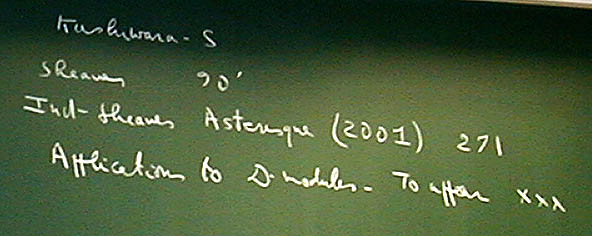 Kashiwara - S
Sheaves 90'
Ind-Sheaves Asterisque (2001) 271
Applications to D-modules - To appear xxx